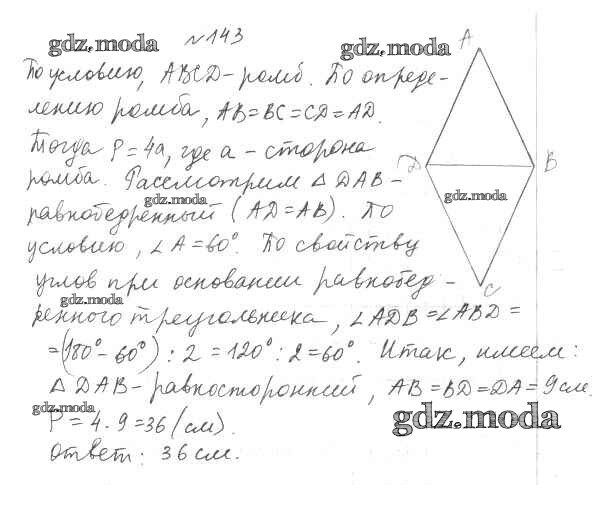 gdz.moda №143 gdz.moda A
По условию, ABCD - ромб. По опреде-
лению ромба, AB = BC = CD = AD.
Тогда P = 4a, где a - сторона
D B
ромба. Рассмотрим △ DAB -
gdz.moda gdz.moda
равнобедренный (AD = AB). По
условию, ∠A = 60°. По свойству
углов при основании равнобед-
gdz.moda C
ренного треугольника, ∠ADB = ∠ABD =
= (180° - 60°) : 2 = 120° : 2 = 60°. Итак, имеем:
△ DAB - равносторонний, AB = BD = DA = 9 см.
gdz.moda gdz.moda
P = 4 · 9 = 36 (см).
Ответ: 36 см.